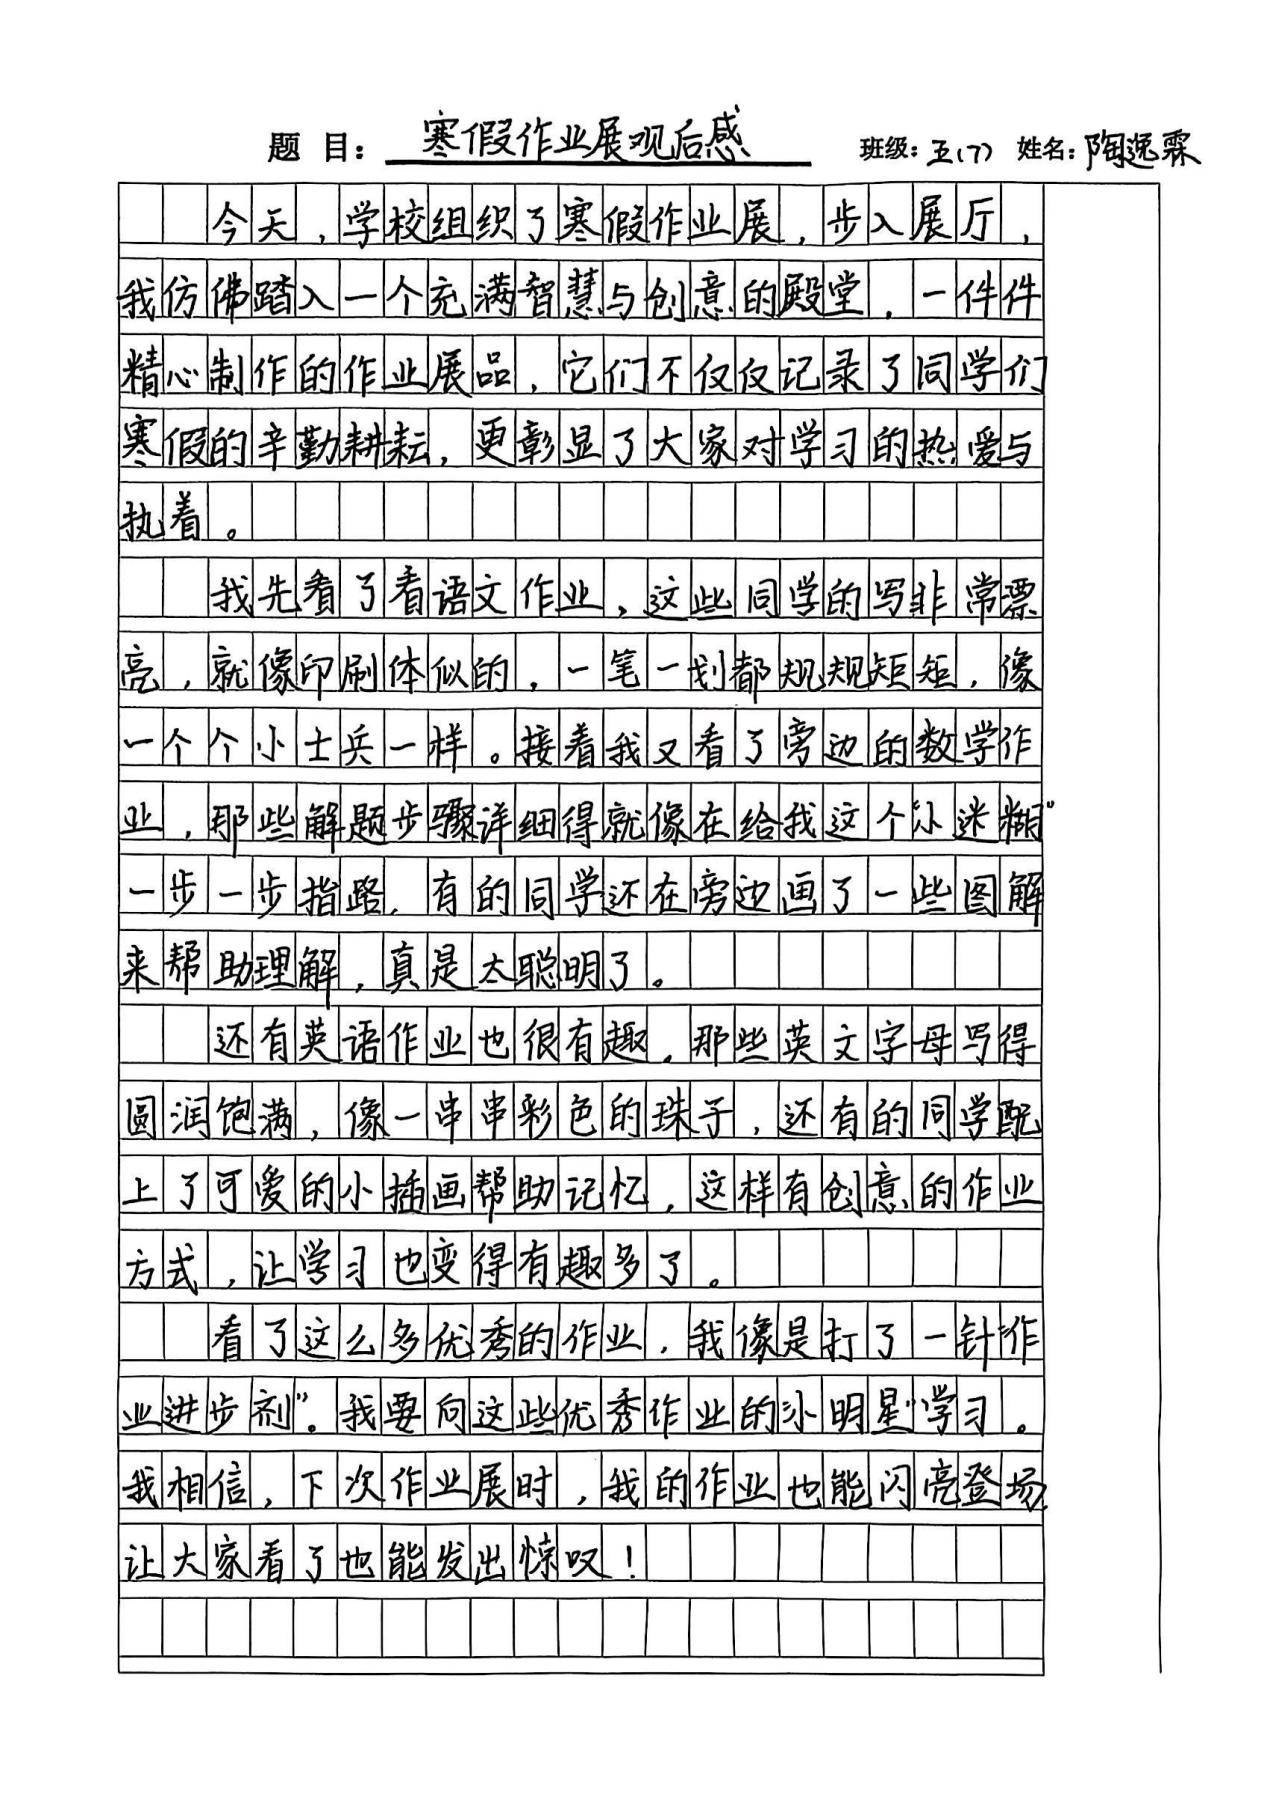 题 目: 寒假作业展观后感 班级: 五(7) 姓名: 陶逸霖
今天,学校组织了寒假作业展,步入展厅,
我仿佛踏入一个充满智慧与创意的殿堂,一件件
精心制作的作业展品,它们不仅仅记录了同学们
寒假的辛勤耕耘,更彰显了大家对学习的热爱与
执着。
我先看了看语文作业,这些同学的写非常漂
亮,就像印刷体似的,一笔一划都规规矩矩,像
一个个小士兵一样。接着我又看了旁边的数学作
业,那些解题步骤详细得就像在给我这个“小迷糊”
一步一步指路,有的同学还在旁边画了一些图解
来帮助理解,真是太聪明了。
还有英语作业也很有趣,那些英文字母写得
圆润饱满,像一串串彩色的珠子,还有的同学配
上了可爱的小插画帮助记忆,这样有创意的作业
方式,让学习也变得有趣多了。
看了这么多优秀的作业,我像是打了一针“作
业进步剂”。我要向这些优秀作业的“小明星”学习。
我相信,下次作业展时,我的作业也能闪亮登场,
让大家看了也能发出惊叹!